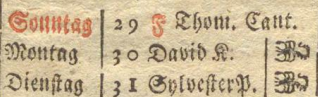 Sonntag 29 F Thom. Cant.
Montag 30 David K.
Dienstag 31 Sylvester P.